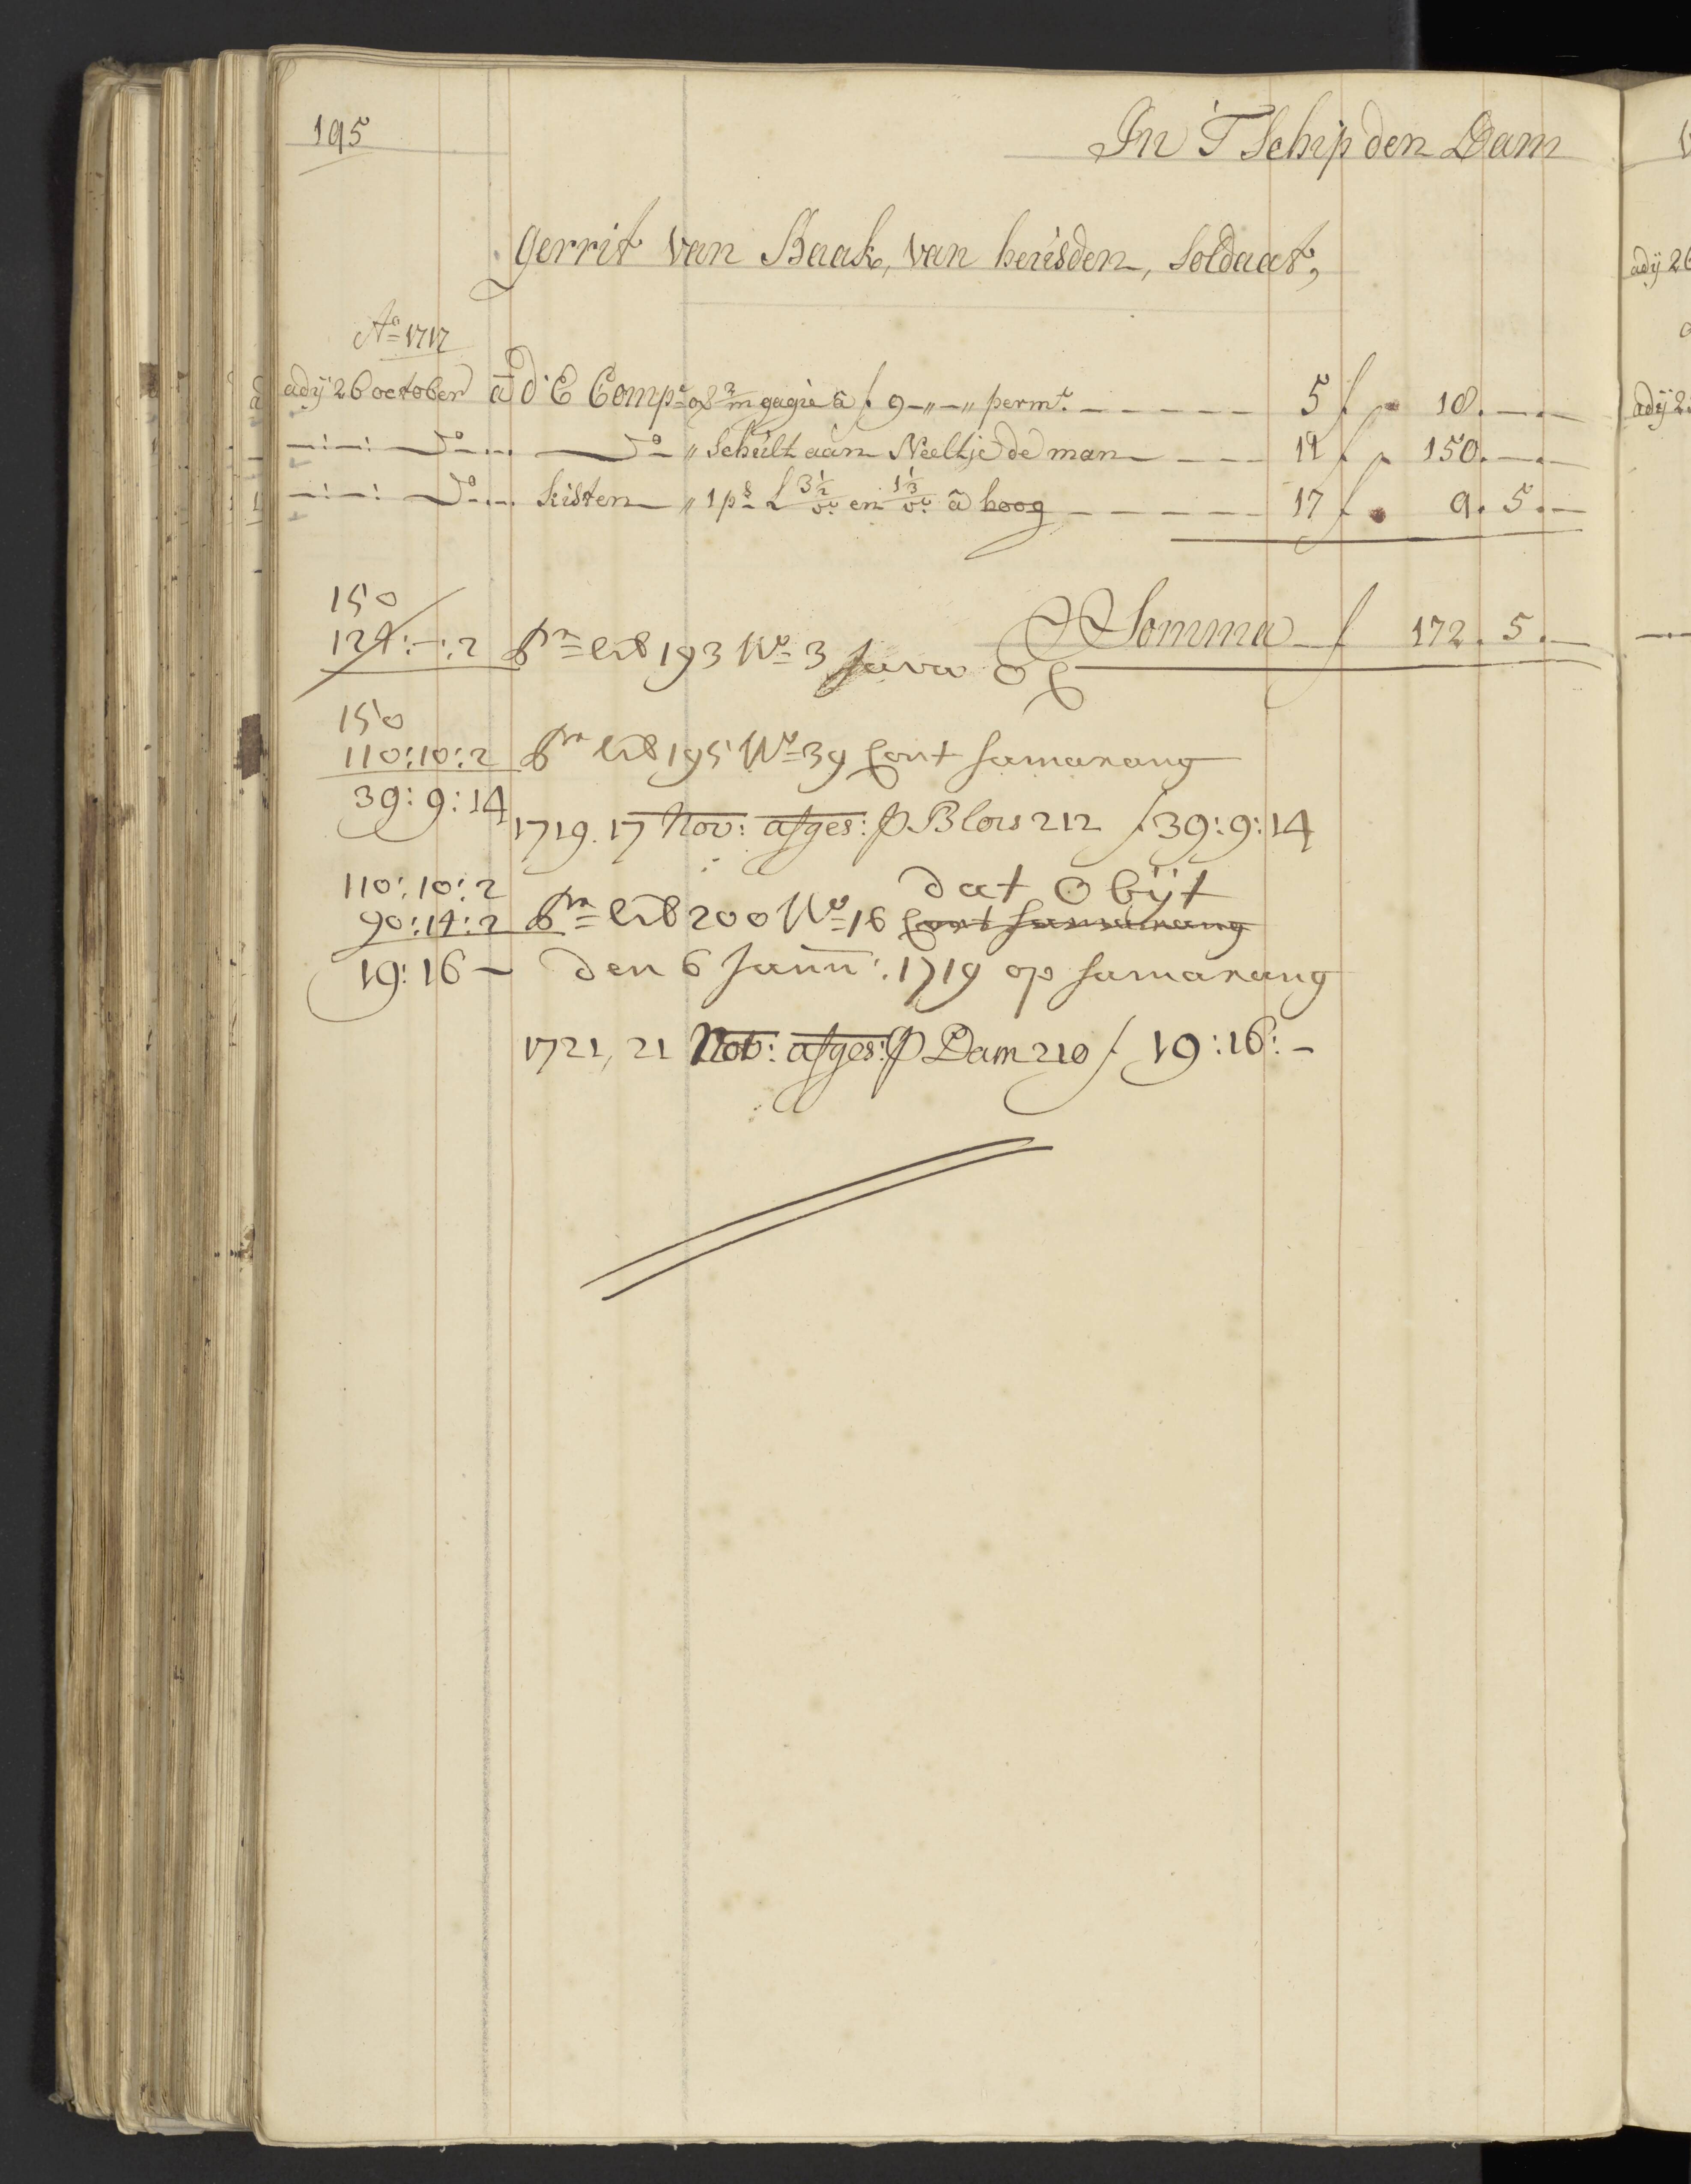 195
In 'T Schip den Dam
Gerrit van Baak, van heusden, Soldaat,
Ao 1717
adij 26 october a d'E Compe op 2/m gagie â f 9-"-" per mt. 5 f 18.—.—
—:—: Do — Do — " Schult aan Neeltje de man 12 f 150.—.—
—:—: Do — kisten " 1 ps L 3½/vt en 1⅓/vt â hoog 17 f 9.5.—
Somma f 172.5.—
150
124:—:2 Pr lib 193 No 3 Java
150
110:10:2 Pr lib 195 No 39 Cont Samarang
39:9:14
1719. 17 Nov: afges: P Blois 212 f 39:9:14
dat Obijt
110:10:2
90:14:2 Pr lib 200 No 16 Cont Samarang
19:16 — den 6 Janu: 1719 op Samarang
1721, 21 Nob: afges: P Dam 210 f 19:16:—
adij 26
adij 2